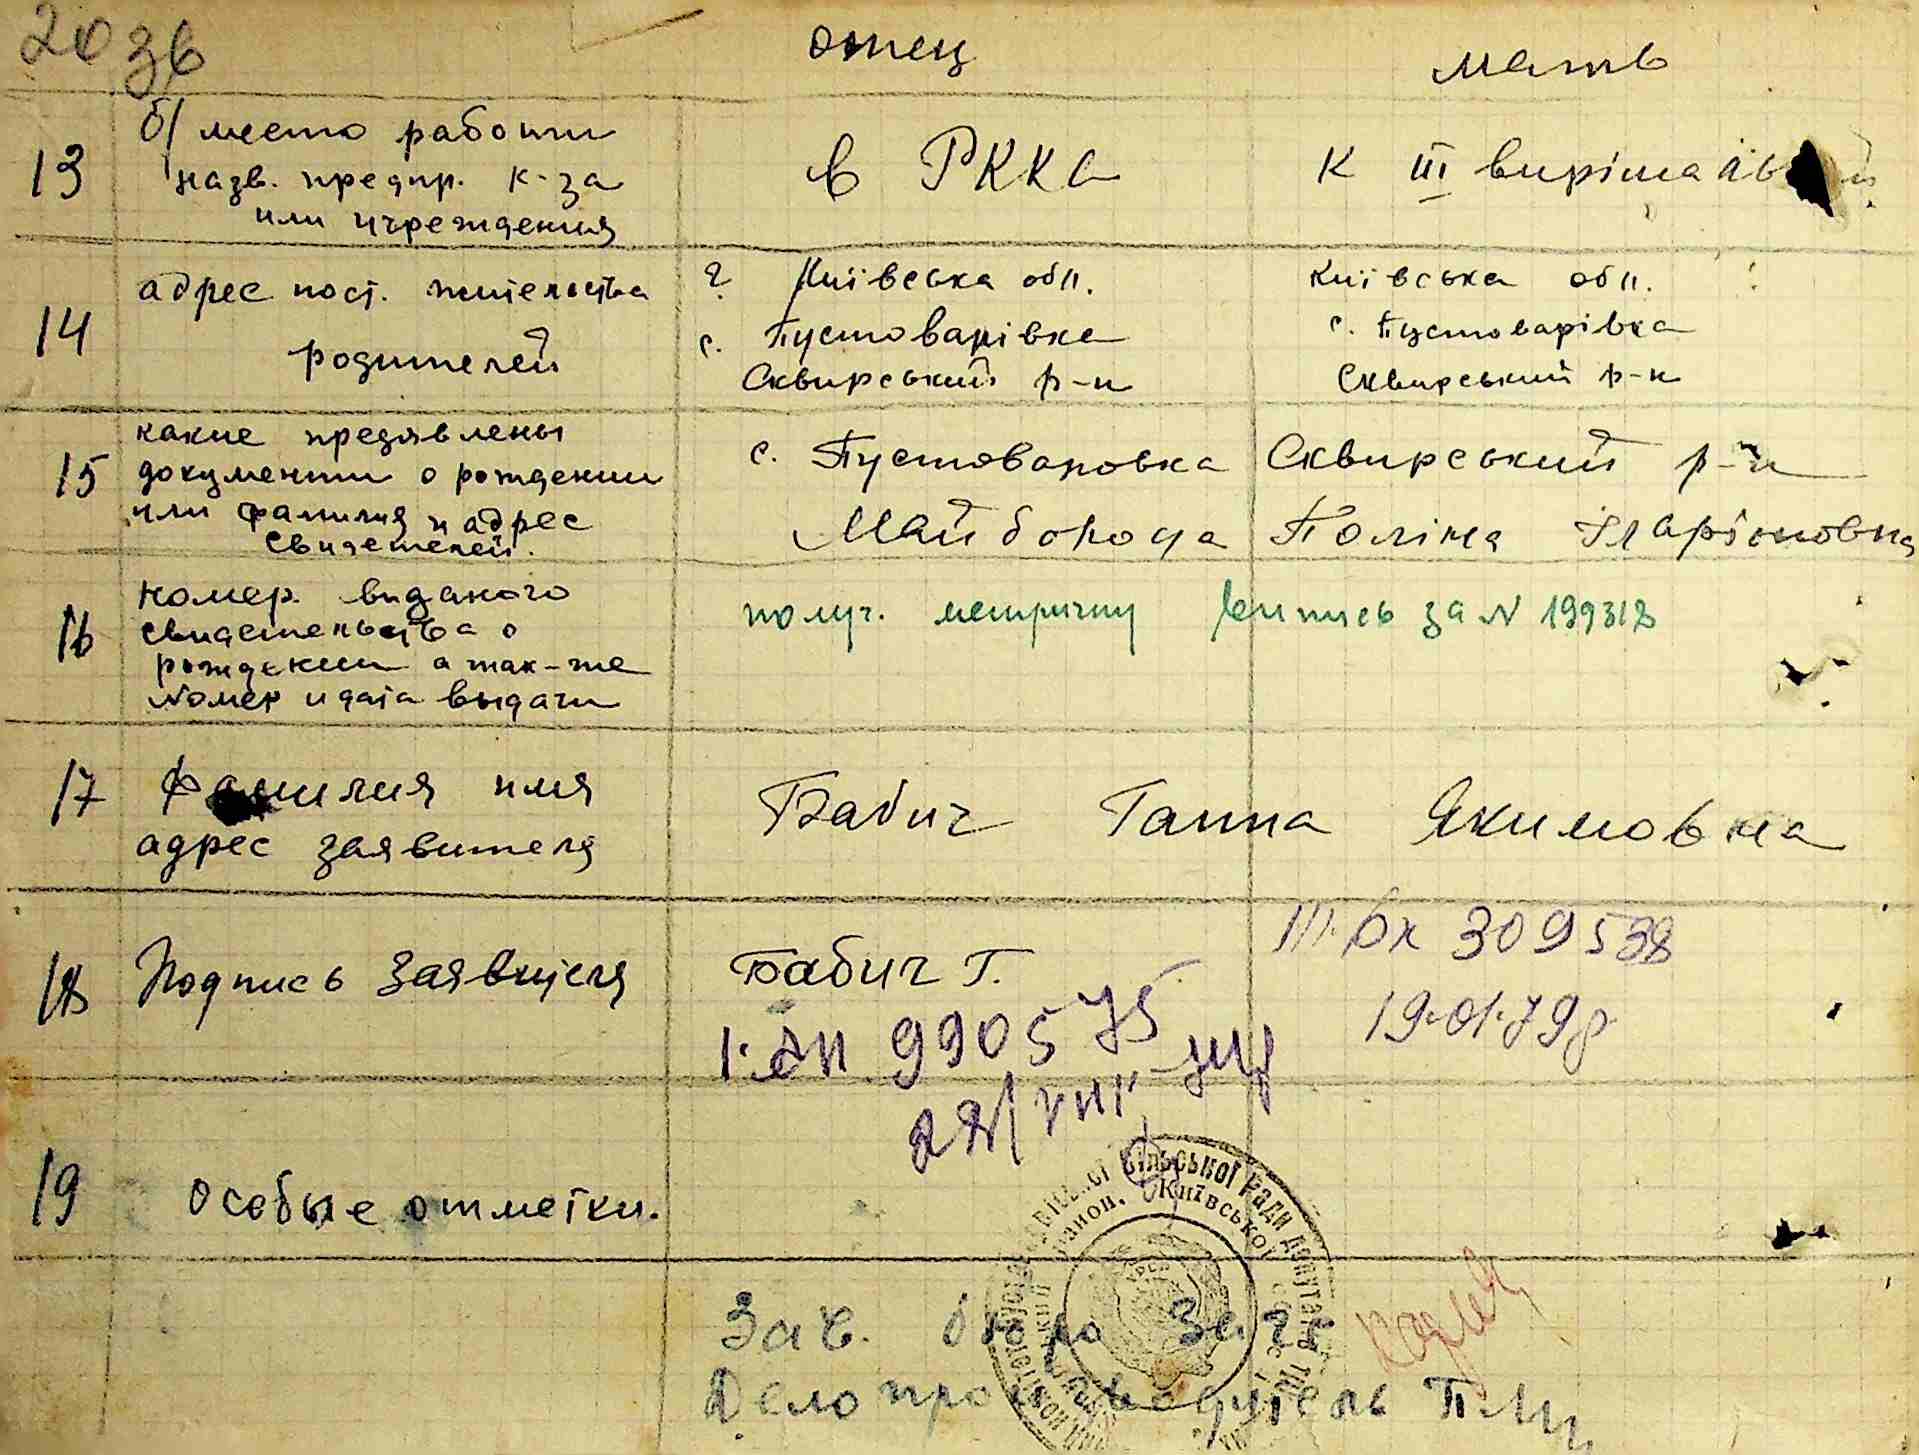 203б
отец
мать
13
б/ место работи
назв. предпр. к-за
или учреждения
в РККА
к III виріша
14
адрес пост. жительства
родителей
? Київська обл.
с. Пустоварівка
Сквирський р-н
Київська обл.
с. Пустоварівка
Сквирський р-н
15
какие предявлены
документи о рождении
или фамилия и адрес
свидетелей.
с. Пустоваровка Сквирський р-н
Майборода Поліна Іларіоновна
16
номер виданого
свидетельства о
рождении а так-же
номер и дата выдачи
получ. метричну випись за N 199318
17
Фамилия имя
адрес заявителя
Бабич Ганна Якимовна
18
Подпись заявителя
Бабич Г.
III. БК 309538
19.01.79р
990575
19
Особые отметки.
сільської Ради депутатів
Київської
УРСР
Зав. бюро загс
Делопроизводитель